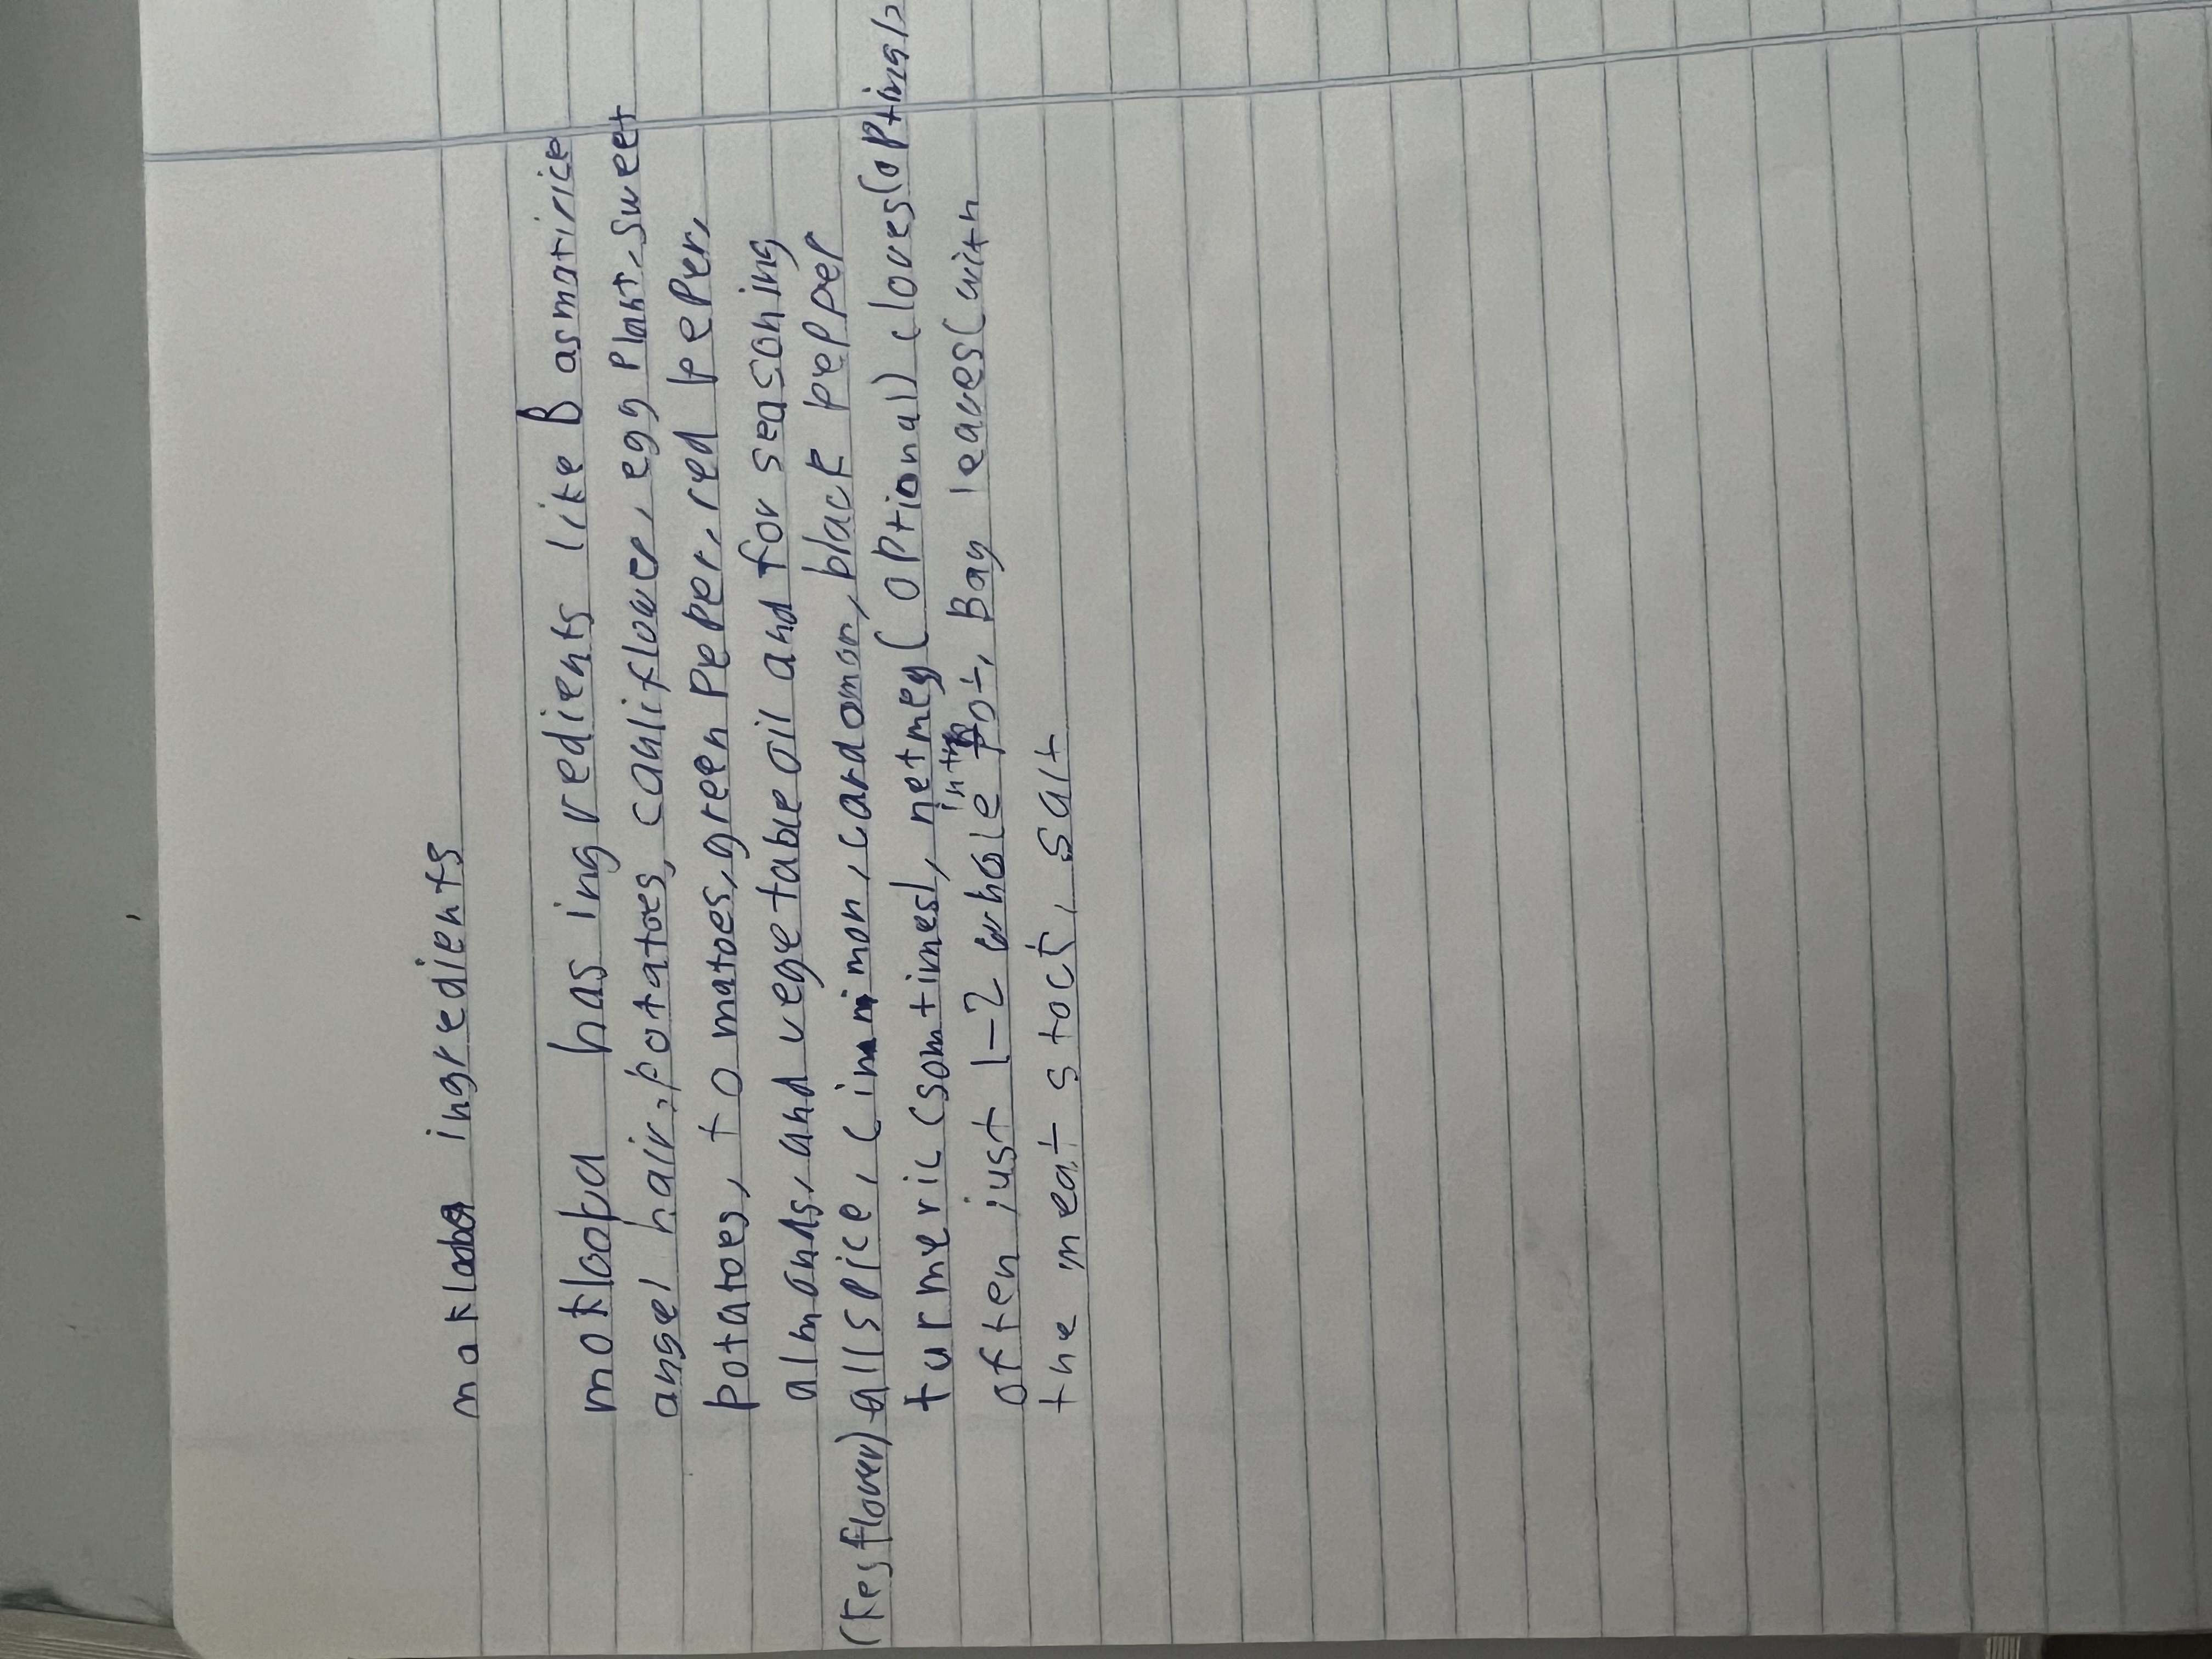 maklooba ingredients
makloopa has ingredients like Basmatirice
angel hair, potatoes, cauliflower, egg plant, sweet
potatoes, tomatoes, green peper, red peper,
almonds, and vegetable oil and for seasoning
allspice, cinnimon, cardomon, black pepper
turmeric (somtimes), netmeg (optional) cloves (optinal)
often just 1-2 whole in the pot, Bay leaves (with
the meat stock, salt